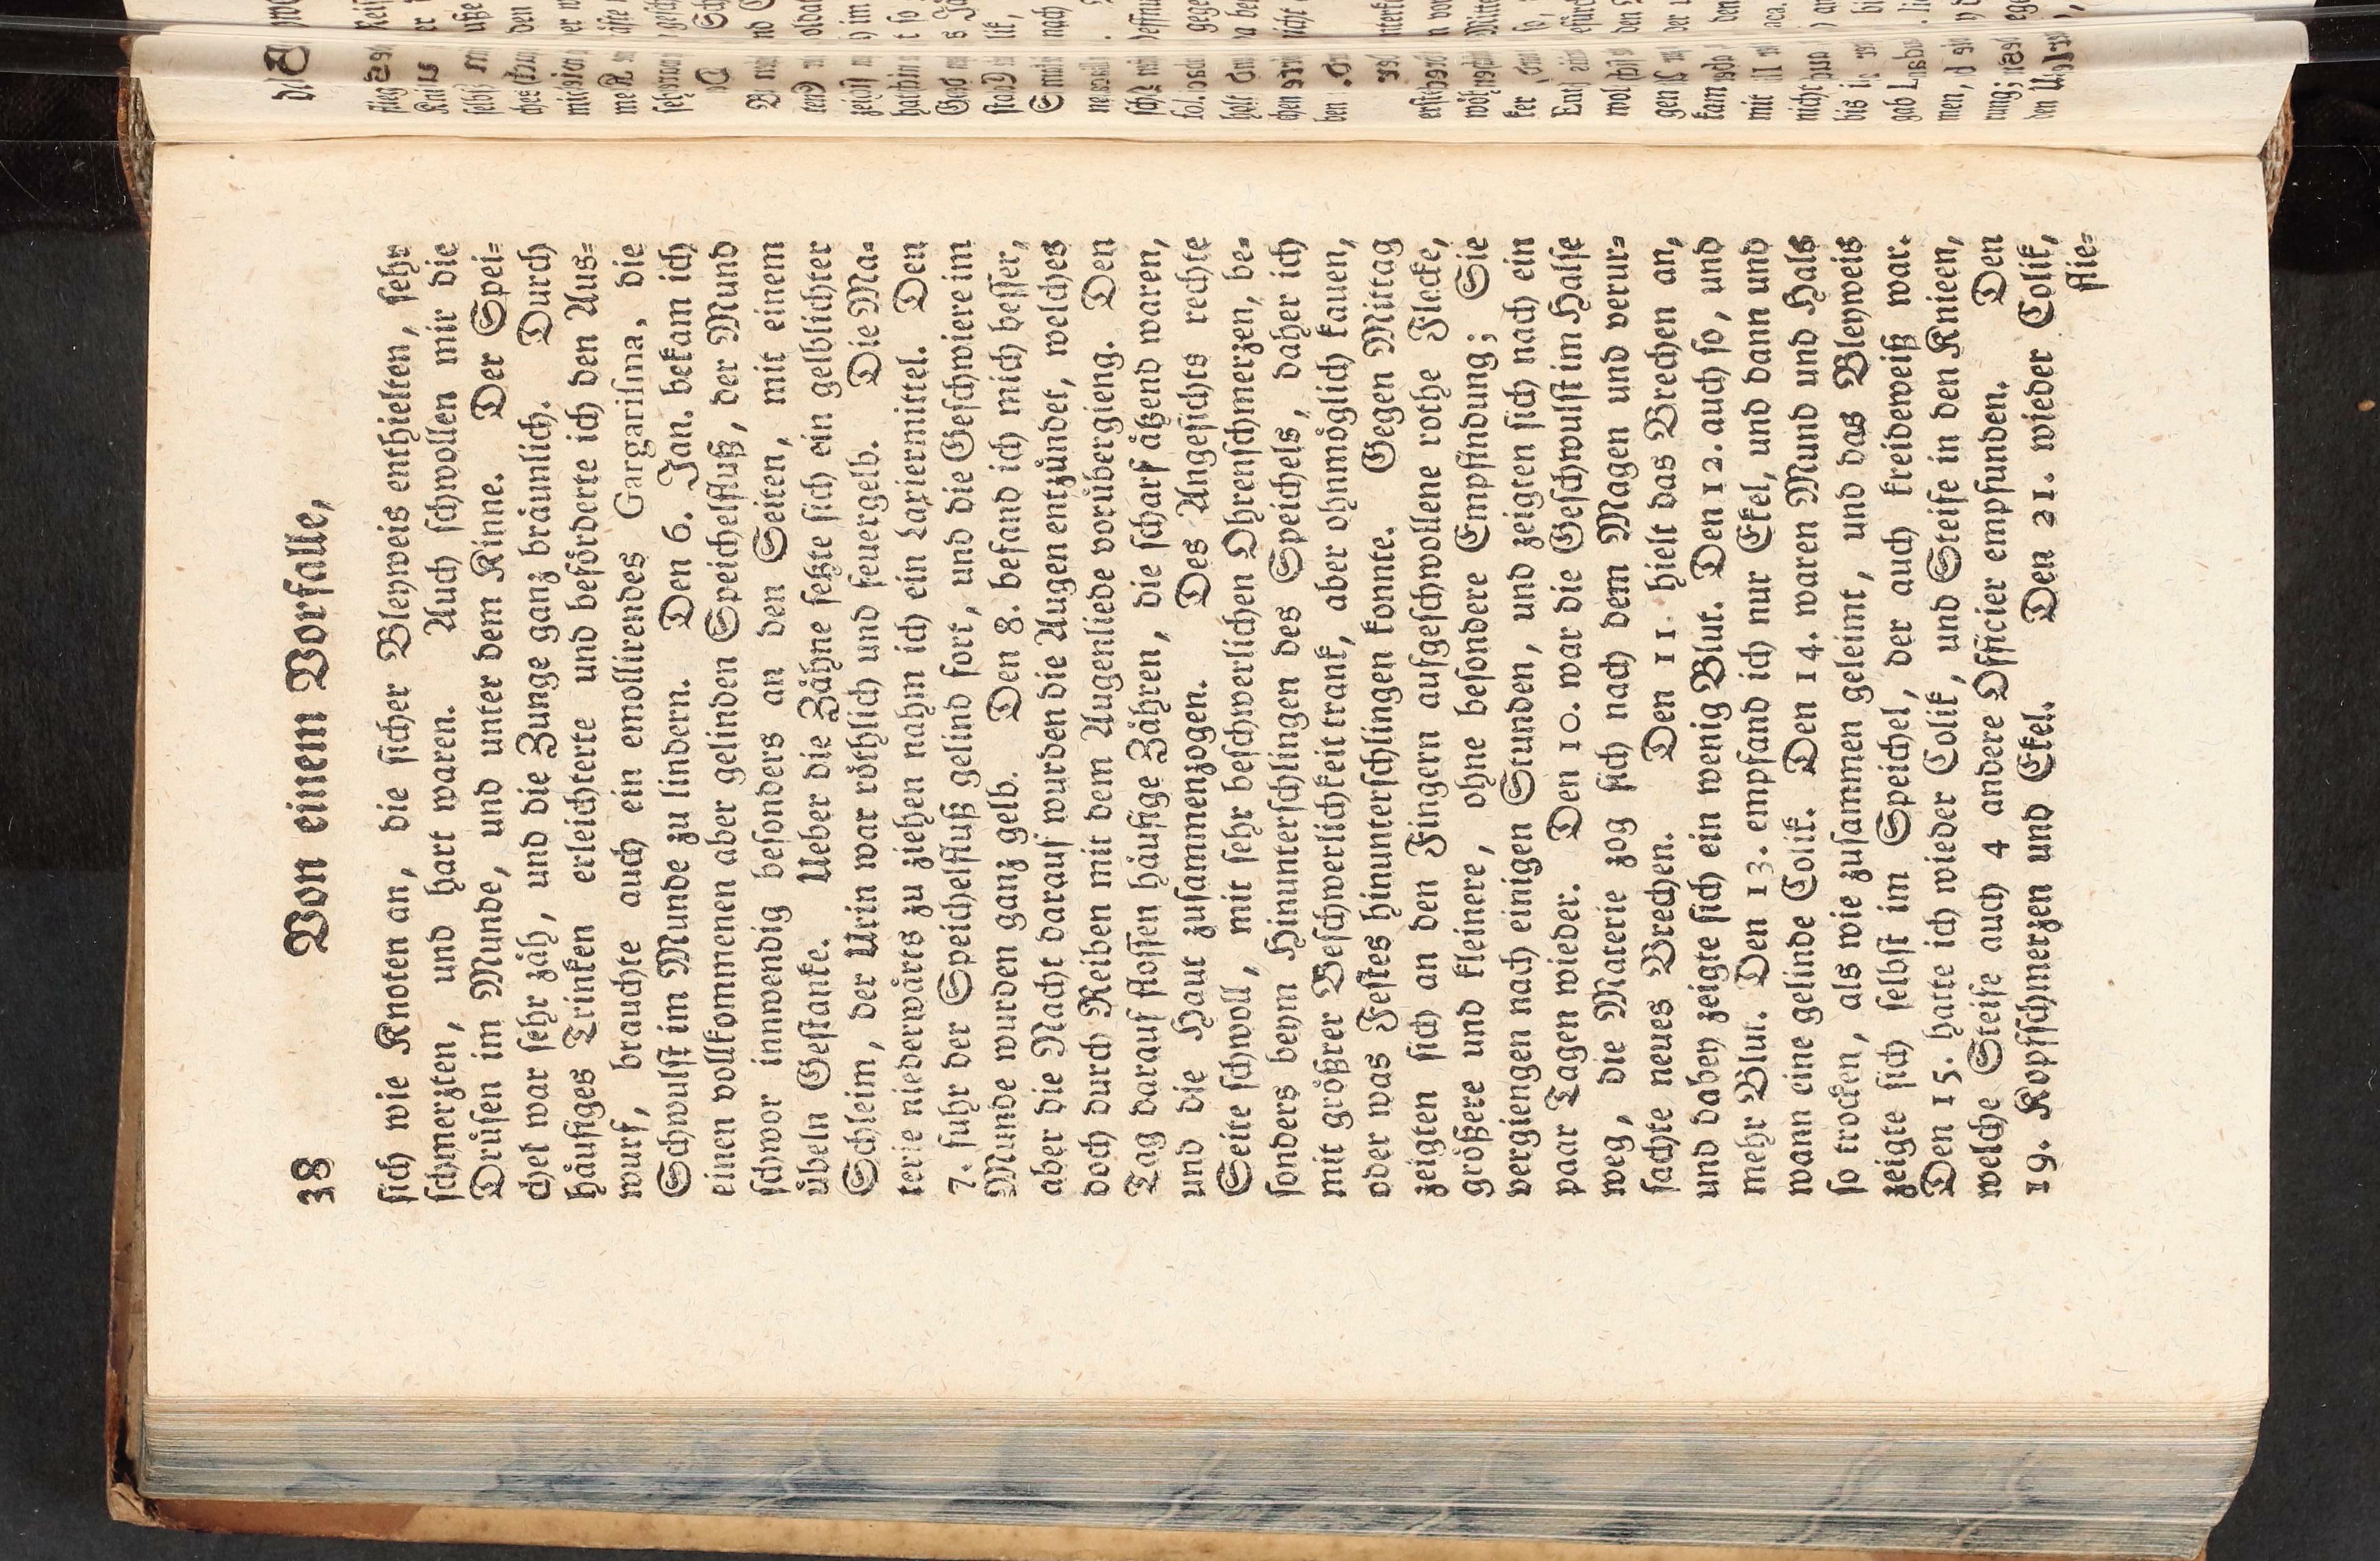 38 Von einem Vorfalle,
ſich wie Knoten an, die ſicher Bleyweis enthielten, ſehr
ſchmerzten, und hart waren. Auch ſchwollen mir die
Druͤſen im Munde, und unter dem Kinne. Der Spei⸗
chel war ſehr zaͤh, und die Zunge ganz braͤunlich. Durch
haͤufiges Trinken erleichterte und befoͤrderte ich den Aus⸗
wurf, brauchte auch ein emollirendes Gargariſma, die
Schwulſt im Munde zu lindern. Den 6. Jan. bekam ich
einen vollkommenen aber gelinden Speichelfluß, der Mund
ſchwor innwendig beſonders an den Seiten, mit einem
uͤbeln Geſtanke. Ueber die Zaͤhne ſetzte ſich ein gelblichter
Schleim, der Urin war roͤthlich und feuergelb. Die Ma⸗
terie niederwaͤrts zu ziehen nahm ich ein Laxiermittel. Den
7. fuhr der Speichelfluß gelind fort, und die Geſchwiere im
Munde wurden ganz gelb. Den 8. befand ich mich beſſer,
aber die Nacht darauf wurden die Augen entzuͤndet, welches
doch durch Reiben mit dem Augenliede voruͤbergieng. Den
Tag darauf floſſen haͤufige Zaͤhren, die ſcharf aͤtzend waren,
und die Haut zuſammenzogen. Des Angeſichts rechte
Seite ſchwoll, mit ſehr beſchwerlichen Ohrenſchmerzen, be⸗
ſonders beym Hinnunterſchlingen des Speichels, daher ich
mit groͤßrer Beſchwerlichkeit trank, aber ohnmoͤglich kauen,
oder was Feſtes hinunterſchlingen konnte. Gegen Mittag
zeigten ſich an den Fingern aufgeſchwollene rothe Flecke,
groͤßere und kleinere, ohne beſondere Empfindung; Sie
vergiengen nach einigen Stunden, und zeigten ſich nach ein
paar Tagen wieder. Den 10. war die Geſchwulſt im Halſe
weg, die Materie zog ſich nach dem Magen und verur⸗
ſachte neues Brechen. Den 11. hielt das Brechen an,
und dabey zeigte ſich ein wenig Blut. Den 12. auch ſo, und
mehr Blut. Den 13. empfand ich nur Ekel, und dann und
wann eine gelinde Colik. Den 14. waren Mund und Hals
ſo trocken, als wie zuſammen geleimt, und das Bleyweis
zeigte ſich ſelbſt im Speichel, der auch kreideweiß war.
Den 15. hatte ich wieder Colik, und Steife in den Knieen,
welche Steife auch 4 andere Officier empfunden. Den
19. Kopfſchmerzen und Ekel. Den 21. wieder Colik,
flie⸗